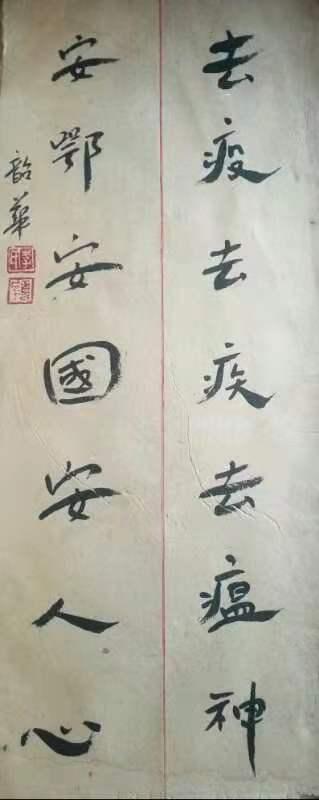 去疫去疾去瘟神
安鄂安國安人心
韶華